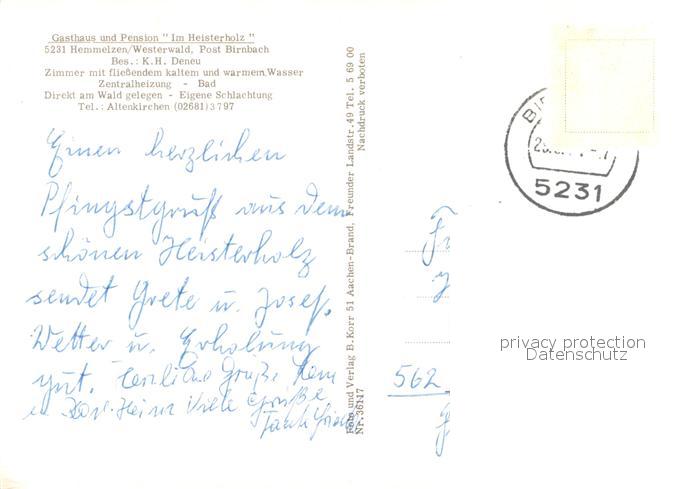 Gasthaus und Pension " Im Heisterholz "
5231 Hemmelzen/Westerwald, Post Birnbach
Bes.: K.H. Deneu
Zimmer mit fließendem kaltem und warmem Wasser
Zentralheizung - Bad
Direkt am Wald gelegen - Eigene Schlachtung
Tel.: Altenkirchen (02681) 3797
Einen herzlichen
Pfingstgruß aus dem
schönen Heisterholz
sendet Grete u. Josef.
Wetter u. Erholung
gut. Herzliche Grüße
u. Karl-Heinz Viele Grüße
Tante
Foto und Verlag B. Korr 51 Aachen-Brand, Freunder Landstr. 49 Tel. 5 69 00
Nr. 36117
Nachdruck verboten
5231
562
privacy protection
Datenschutz